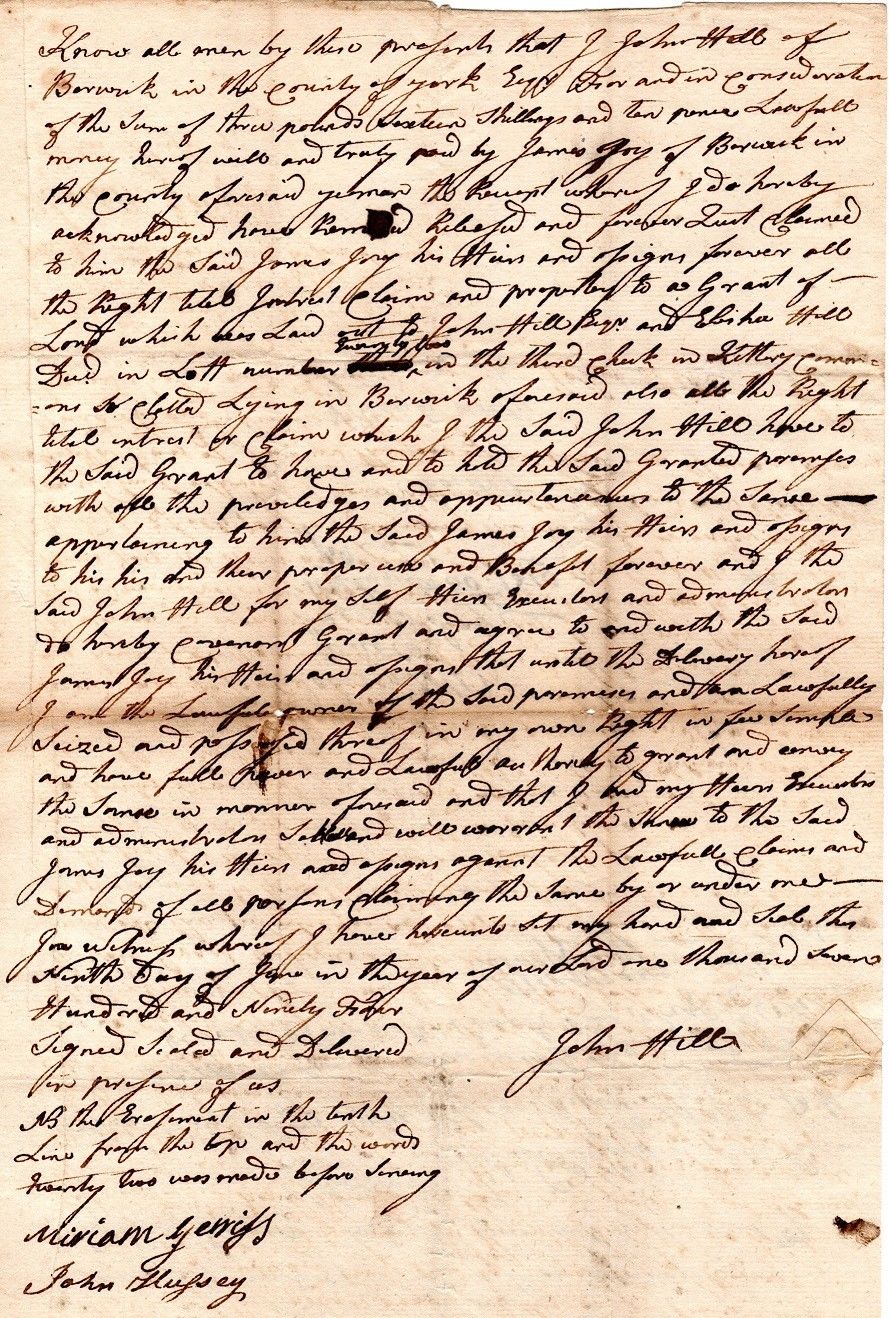 Know all men by these presents that I John Hill of
Berwick in the County of york Esqr For and in Consideration
of the Sum of three pounds Sixteen Shillings and ten pence Lawfull
money hereof will and truly paid by James Joy of Berwick in
the County aforesaid yeoman the Receipt whereof I do hereby
acknowledged have Released and forever Quit Claimed
to him the Said James Joy his Heirs and assigns forever all
the Right titel Intrest Claim and property to a Grant of —
Land which was Laid out to John Hill Esqr and Elisha Hill
twenty two
Decd in Lott number in the third Check in Kittery Comm=
=ons So Called Lying in Berwick aforesaid also all the Right
titel intrest or Claim which I the Said John Hill have to
the Said Grant to have and to hold the Said Granted premises
with all the priviledges and appurtenances to the Same —
appertaining to him the Said James Joy his Heirs and assigns
to his his and their proper use and Benefit forever and I the
Said John Hill for my Self Heirs Executors and administrators
do hereby Covenant Grant and agree to and with the Said
James Joy his Heirs and assigns that until the Delivery hereof
I am the Lawfull owner of the Said premises and am Lawfully
Seized and possessed thereof in my own Right in fee Simple
and have full Power and Lawfull authority to grant and convey
the Same in manner aforesaid and that I and my Heirs Executors
and administrators Shall and will warrant the Same to the Said
James Joy his Heirs and assigns against the Lawfull Claims and
Demands of all persons Claiming the Same by or under me —
In Witness whereof I have hereunto Set my hand and Seale this
Ninth Day of June in the year of our Lord one thousand Seven
Hundred and Ninety Four
Signed Sealed and Delivered
in presence of us
John Hill
NB the Erasement in the tenth
Line from the top and the words
twenty two was made before Sineing
Miriam Gerrish
John Hussey